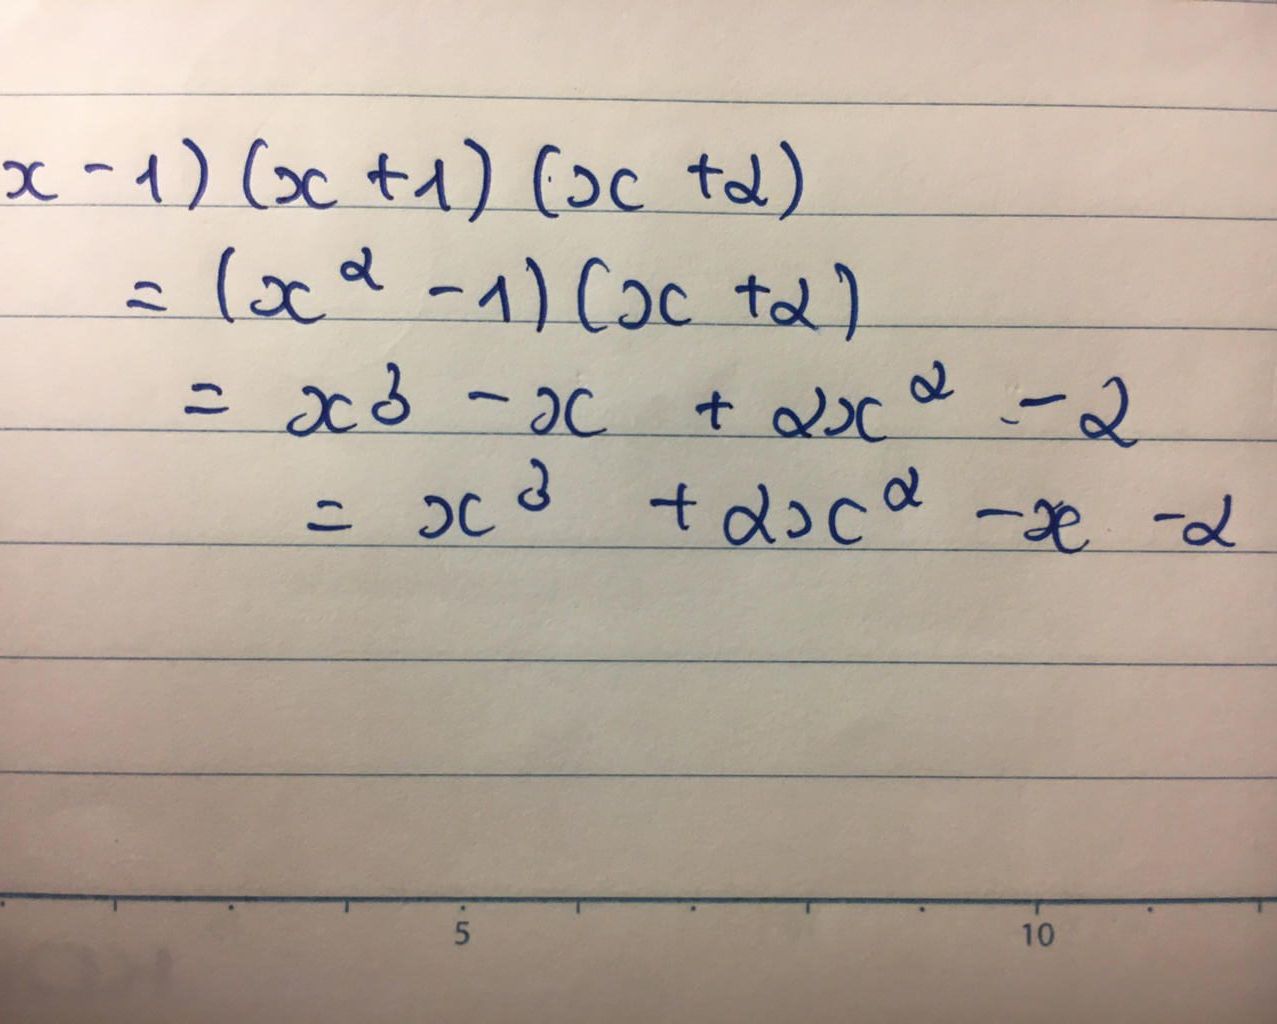 x - 1) (x + 1) (x + 2)
= (x² - 1) (x + 2)
= x³ - x + 2x² - 2
= x³ + 2x² - x - 2
5 10